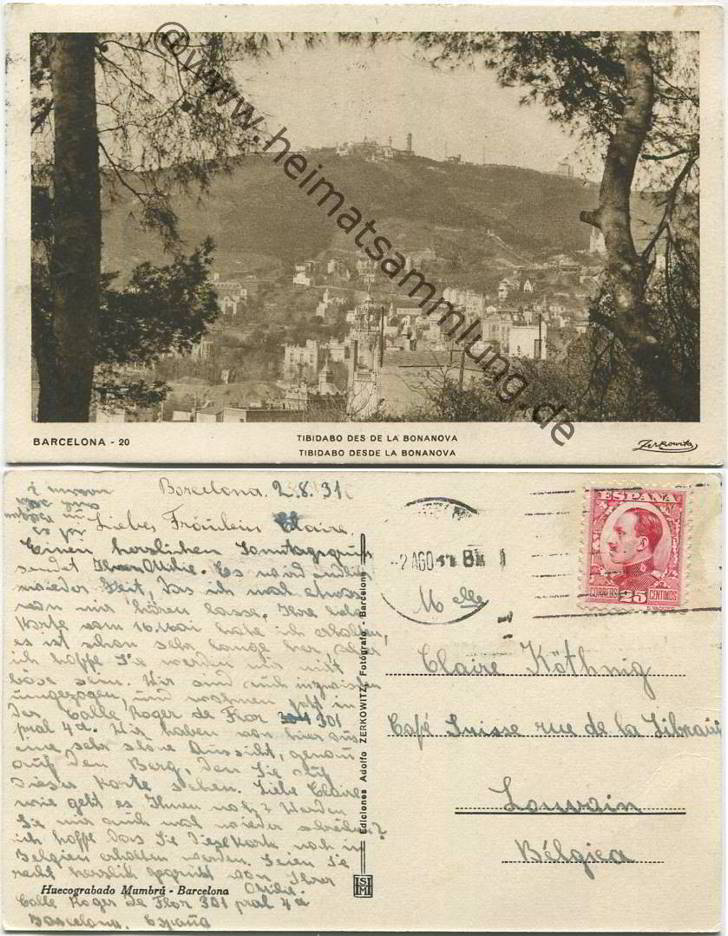 ©www.heimatsammlung.de
BARCELONA - 20
TIBIDABO DES DE LA BONANOVA
TIBIDABO DESDE LA BONANOVA
Zerkowitz
Barcelona. 2.8.31
Liebes Fräulein Claire.
Einen herzlichen Sonntagsgruss
sendet Ihnen Ottilie. Es wird endlich
wieder Zeit, das ich mal etwas
von mir hören lasse. Ihre liebe
Karte vom 10. Mai habe ich erhalten,
es ist schon sehr lange her, aber
ich hoffe Sie werden mir nicht
böse sein. Wir sind auch inzwischen
umgezogen, und wohnen jetzt in
der Calle Roger de Flor 301
pral 4a. Wir haben von hier aus
eine sehr schöne Aussicht, genau
auf den Berg, den Sie auf
dieser Karte sehen. Liebe Claire
wie geht es Ihnen noch? Werden
Sie mir auch mal wieder schreiben?
ich hoffe das Sie diese Karte noch in
Belgien erhalten werden. Seien Sie
recht herzlich gegrüsst von Ihrer
Ottilie.
Calle Roger De Flor 301 pral 4a
Barcelona. España
Huecograbado Mumbrú - Barcelona
Ediciones Adolfo ZERKOWITZ Fotógrafo - Barcelona
ESPAÑA
CORREOS 25 CENTIMOS
-2 AGO
Melle
Claire Köthnig
Café Suisse rue de la
Louvain
Bélgica